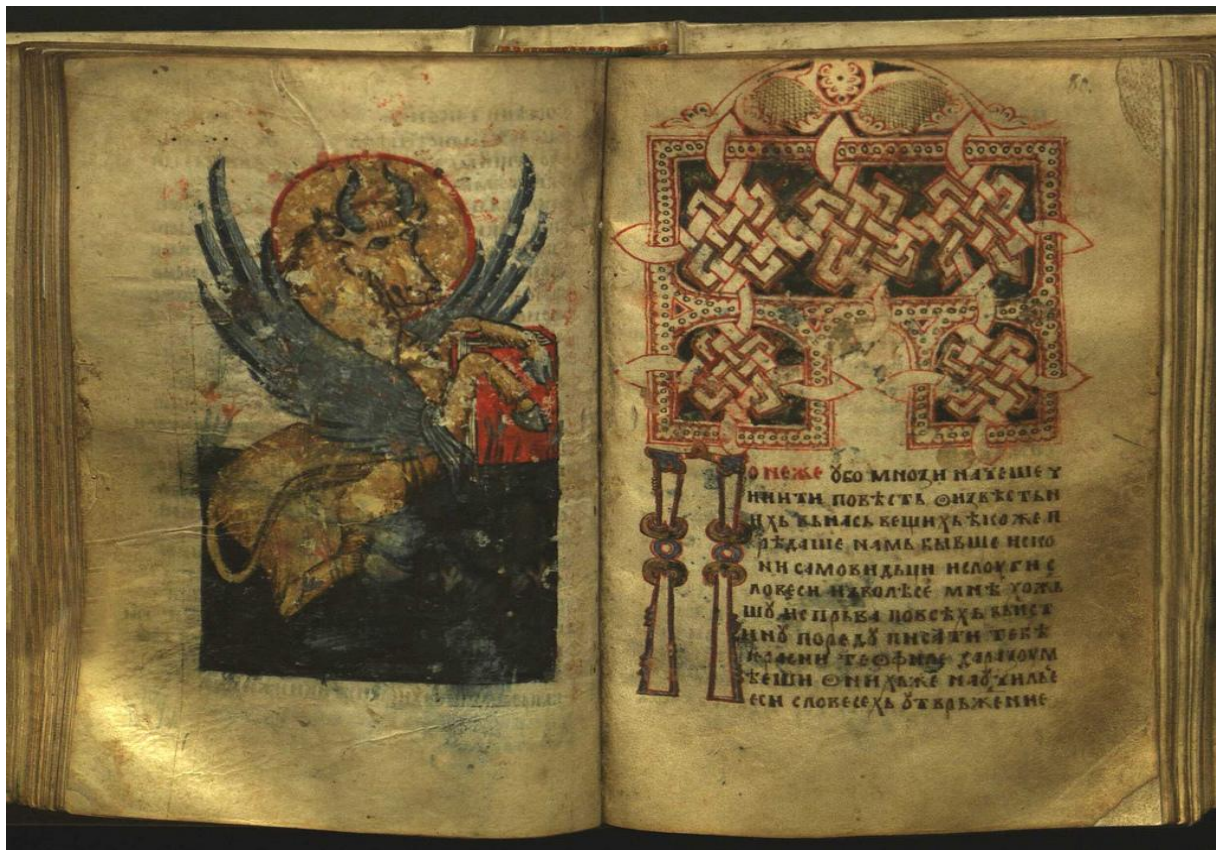 П
онеже ѹбо мнози начеше ч
инити повѣсть ѡнихвѣстьн
ихь вьнась вещихь ꙗкоже п
рѣдаше намь бывше неко
ни самовидьци ислоугис
ловеси изволѣсе мнѣ хожь
шѹ испрьва повсѣхь вьист
инѹ поредѹ писати тебѣ
теѡфиле даразоум
ѣеши ѡнихьже наѹчильсе
еси словесехь ѹтврьжение